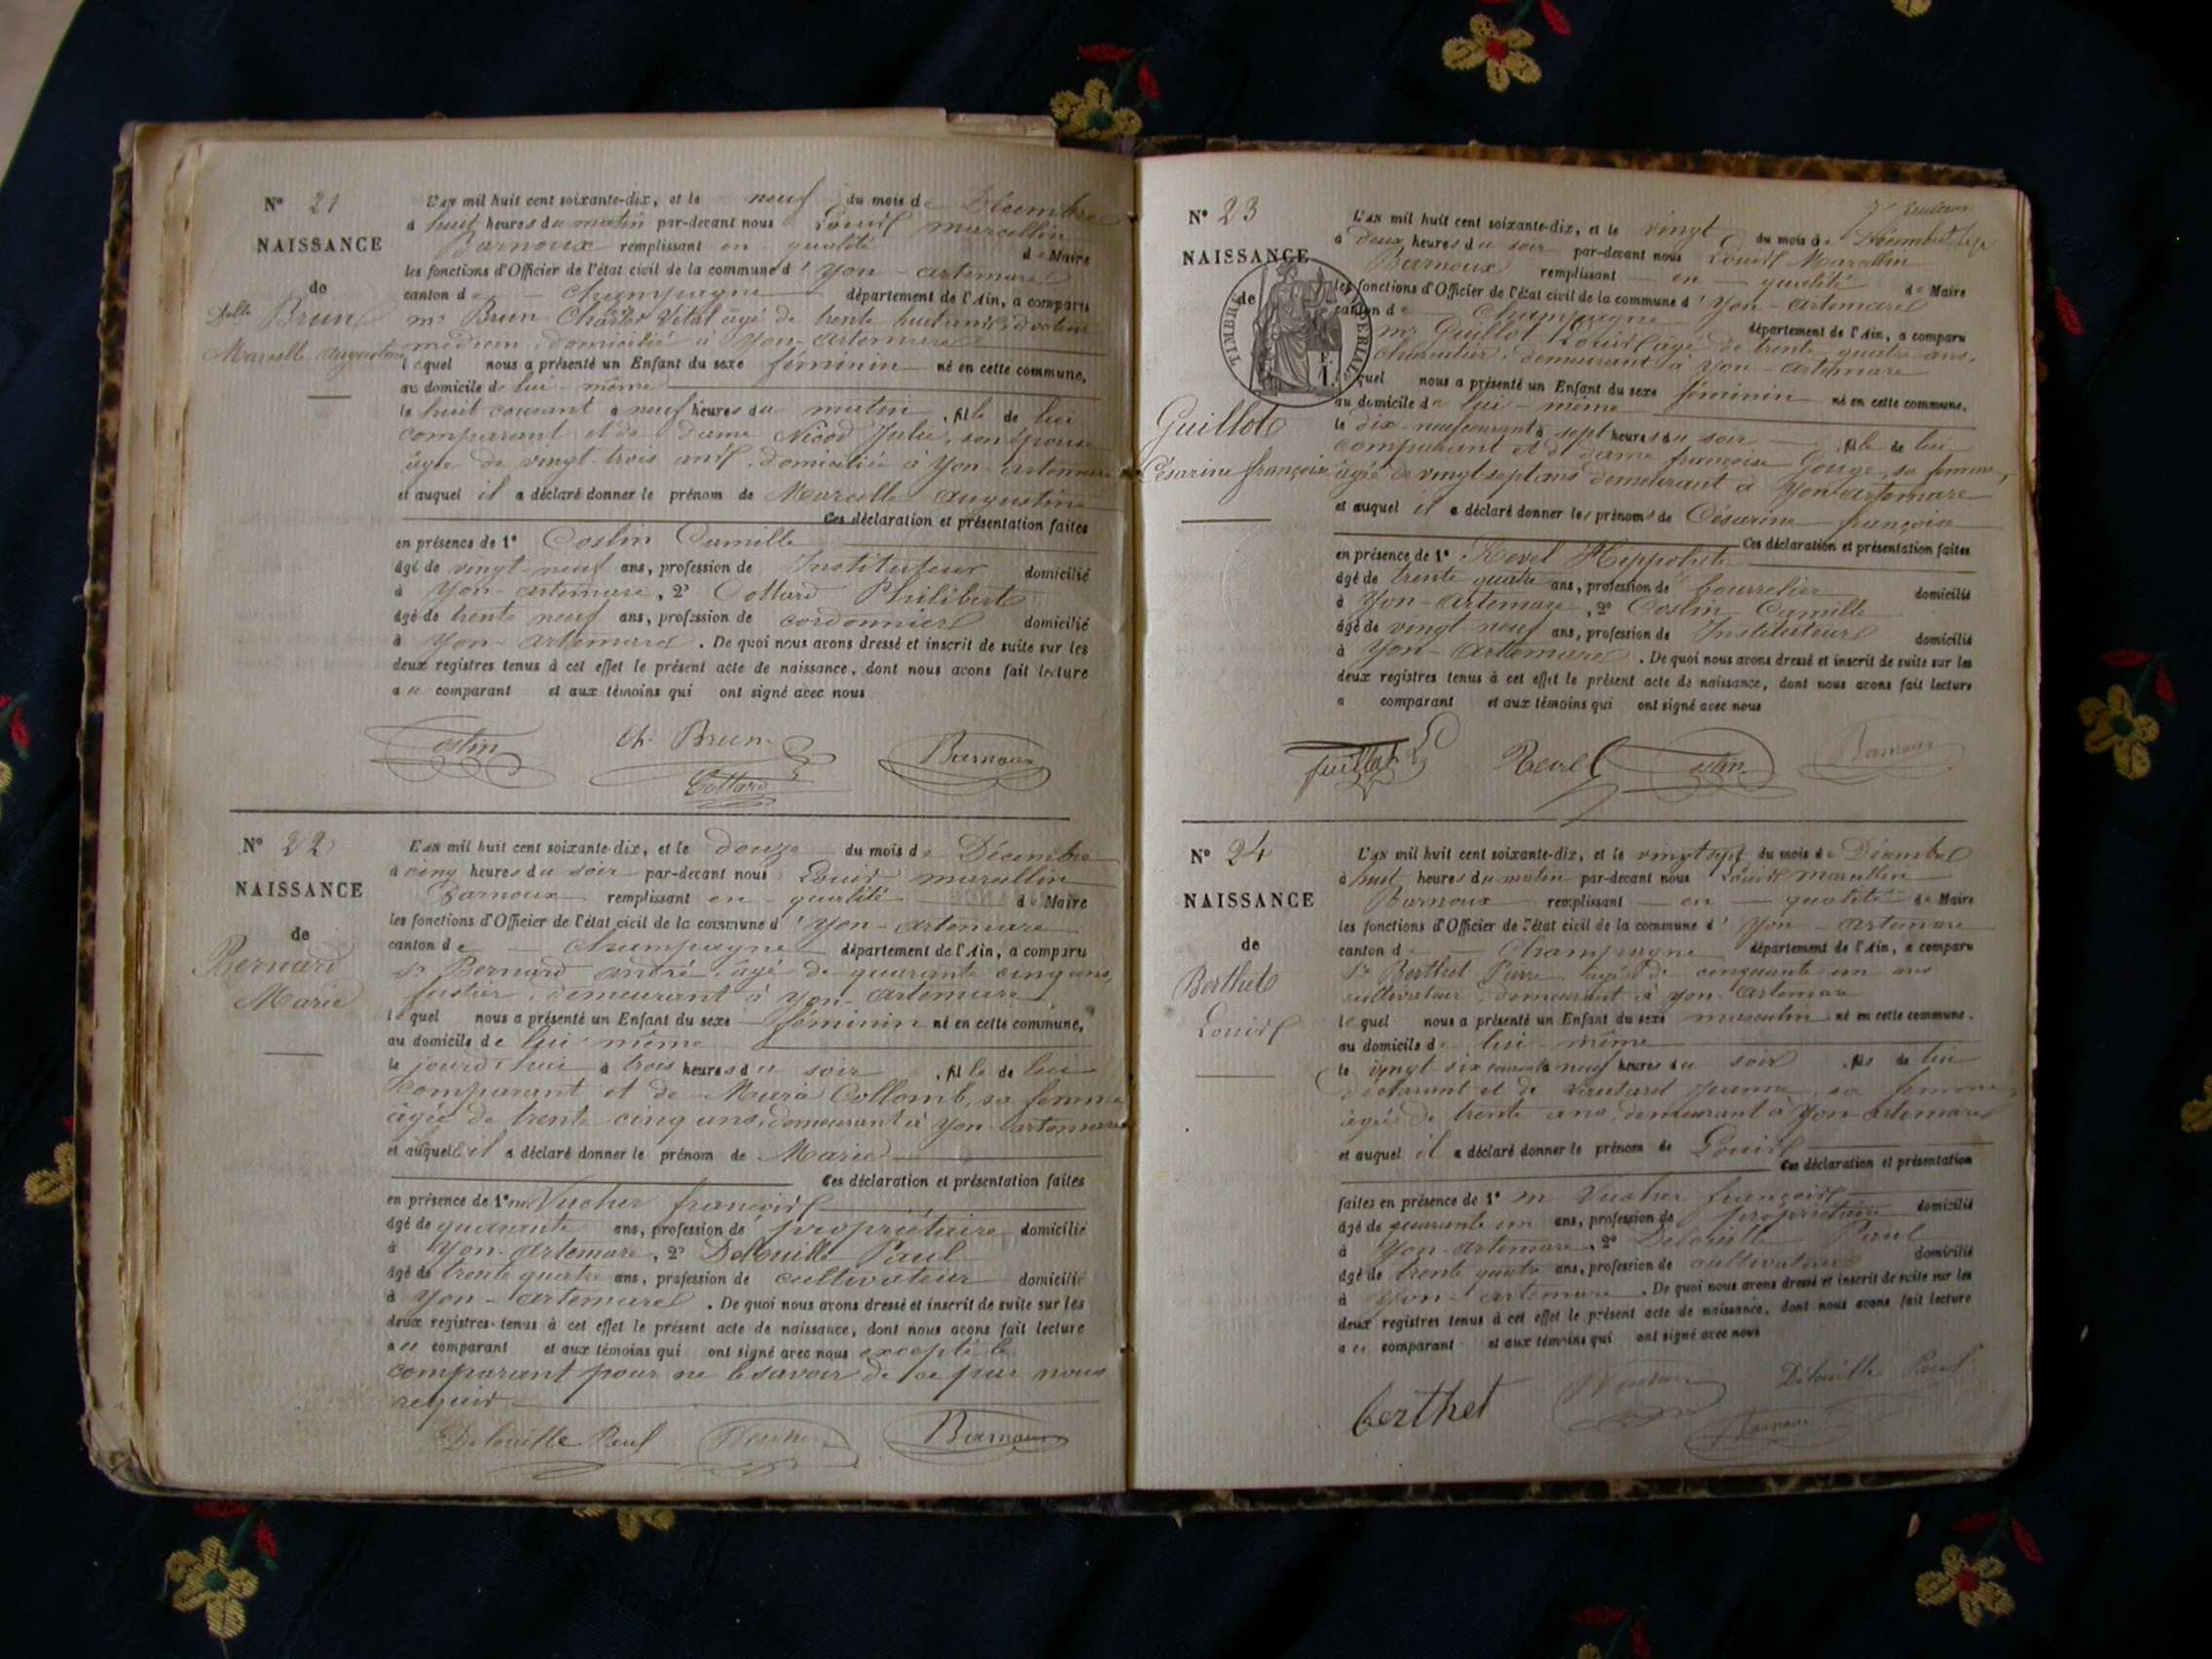 N° 21
NAISSANCE
de
Delle Brun
Marcelle Augustine
L'AN mil huit cent soixante-dix, et le neuf du mois de Décembre
à huit heures du matin par-devant nous Louis Marcellin
Barnoux remplissant en qualité de Maire
les fonctions d'Officier de l'état civil de la commune d'Yon-Artemare
canton de Champagne département de l'Ain, a comparu
mr Brun Charles Vital âgé de trente huit ans, docteur
médecin, domicilié à Yon-Artemare
lequel nous a présenté un Enfant du sexe féminin né en cette commune,
au domicile de lui-même
le huit courant à neuf heures du matin, fille de lui
comparant et de dame Nicod Julie, son épouse
âgée de vingt-trois ans, domiciliée à Yon-Artemare
et auquel il a déclaré donner le prénom de Marcelle Augustine
Ces déclaration et présentation faites
en présence de 1° Costin Camille
âgé de vingt-neuf ans, profession de Instituteur domicilié
à Yon-Artemare, 2° Cottard Philibert
âgé de trente neuf ans, profession de cordonnier domicilié
à Yon-Artemare. De quoi nous avons dressé et inscrit de suite sur les
deux registres tenus à cet effet le présent acte de naissance, dont nous avons fait lecture
au comparant et aux témoins qui ont signé avec nous
Costin Ch. Brun Barnoux
Cottard
N° 22
NAISSANCE
de
Bernard
Marie
L'AN mil huit cent soixante-dix, et le douze du mois de Décembre
à cinq heures du soir par-devant nous Louis Marcellin
Barnoux remplissant en qualité de Maire
les fonctions d'Officier de l'état civil de la commune d'Yon-Artemare
canton de Champagne département de l'Ain, a comparu
sr Bernard André, âgé de quarante cinq ans,
fustier, demeurant à Yon-Artemare
lequel nous a présenté un Enfant du sexe féminin né en cette commune,
au domicile de lui même
le jourd'hui à trois heures du soir, fille de lui
comparant et de Marie Collomb, sa femme
âgée de trente cinq ans, demeurant à Yon-Artemare
et auquel il a déclaré donner le prénom de Marie
Ces déclaration et présentation faites
en présence de 1° mr Vucher françois
âgé de quarante ans, profession de propriétaire domicilié
à Yon-Artemare, 2° Delouille Paul
âgé de trente quatre ans, profession de cultivateur domicilié
à Yon-Artemare. De quoi nous avons dressé et inscrit de suite sur les
deux registres tenus à cet effet le présent acte de naissance, dont nous avons fait lecture
au comparant et aux témoins qui ont signé avec nous excepté le
comparant pour ne le savoir de ce par nous
requis
Delouille Paul Barnoux
N° 23
NAISSANCE
de
TIMBRE IMPERIAL
Guillot
Césarine françoise
L'AN mil huit cent soixante-dix, et le vingt du mois de Décembre
à deux heures du soir par-devant nous Louis Marcellin
Barnoux remplissant en qualité de Maire
les fonctions d'Officier de l'état civil de la commune d'Yon-Artemare
canton de Champagne département de l'Ain, a comparu
mr Guillot Louis âgé de trente quatre ans,
demeurant à Yon-Artemare
lequel nous a présenté un Enfant du sexe féminin né en cette commune,
au domicile de lui-même
le dix-neuf courant à sept heures du soir, fille de lui
comparant et de dame françoise Gouge, sa femme,
âgée de vingt sept ans demeurant à Yon-Artemare
et auquel il a déclaré donner les prénoms de Césarine françoise
Ces déclaration et présentation faites
en présence de 1° Revel Hippolite
âgé de trente quatre ans, profession de bourrelier domicilié
à Yon-Artemare, 2° Costin Camille
âgé de vingt-neuf ans, profession de Instituteur domicilié
à Yon-Artemare. De quoi nous avons dressé et inscrit de suite sur les
deux registres tenus à cet effet le présent acte de naissance, dont nous avons fait lecture
a comparant et aux témoins qui ont signé avec nous
Guillot Revel Costin Barnoux
N° 24
NAISSANCE
de
Berthet
Louis
L'AN mil huit cent soixante-dix, et le vingt sept du mois de Décembre
à huit heures du matin par-devant nous Louis Marcellin
Barnoux remplissant en qualité de Maire
les fonctions d'Officier de l'état civil de la commune d'Yon-Artemare
canton de Champagne département de l'Ain, a comparu
sr Berthet Pierre âgé de cinquante un ans
cultivateur, demeurant à Yon-Artemare
lequel nous a présenté un Enfant du sexe masculin né en cette commune,
au domicile de lui-même
le vingt six courant à neuf heures du soir, fils de lui
déclarant et de Vautaret Jeanne, sa femme,
âgée de trente ans, demeurant à Yon-Artemare
et auquel il a déclaré donner le prénom de Louis
Ces déclaration et présentation
faites en présence de 1° m Vucher françois
âgé de quarante un ans, profession de propriétaire domicilié
à Yon-Artemare, 2° Delouille Paul
âgé de trente quatre ans, profession de cultivateur domicilié
à Yon-Artemare. De quoi nous avons dressé et inscrit de suite sur les
deux registres tenus à cet effet le présent acte de naissance, dont nous avons fait lecture
au comparant et aux témoins qui ont signé avec nous
berthet Delouille Paul
Barnoux